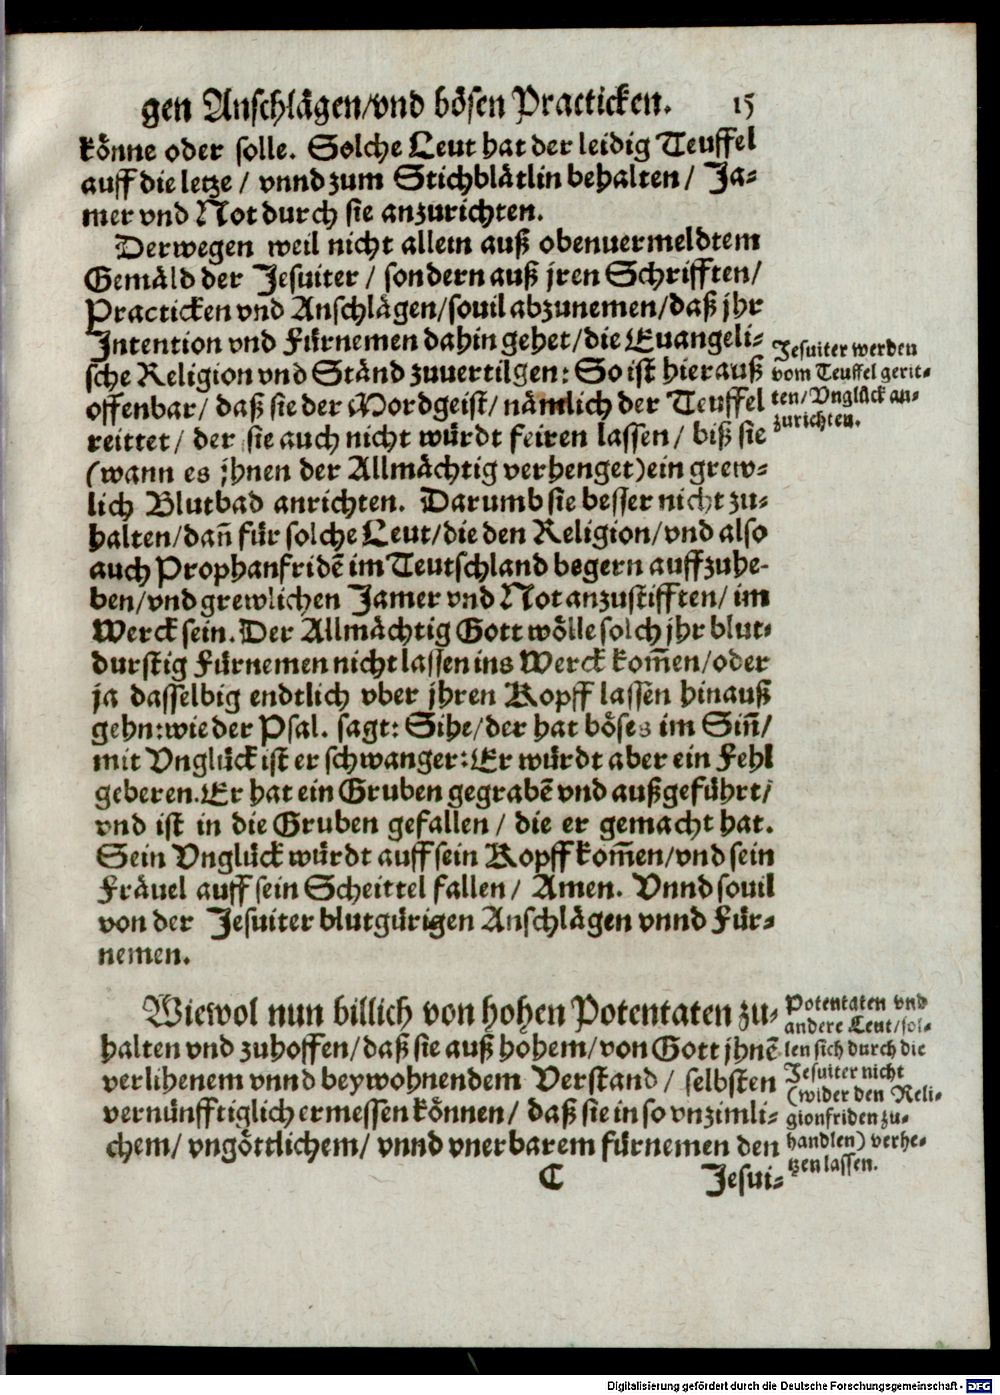 gen Anschlägen/vnd bösen Practicken. 15
könne oder solle. Solche Leut hat der leidig Teuffel
auff die letze / vnnd zum Stichblätlin behalten / Ja-
mer vnd Not durch sie anzurichten.
Derwegen weil nicht allein auß obenuermeldtem
Gemäld der Jesuiter / sondern auß jren Schrifften/
Practicken vnd Anschlägen/souil abzunemen/daß jhr
Intention vnd Fürnemen dahin gehet/die Euangeli-
sche Religion vnd Ständ zuuertilgen: So ist hierauß
offenbar/ daß sie der Mordgeist/ nämlich der Teuffel
reittet/ der sie auch nicht würdt feiren lassen / biß sie
(wann es jhnen der Allmächtig verhenget) ein grew-
lich Blutbad anrichten. Darumb sie besser nicht zu-
halten/dañ für solche Leut/die den Religion/vnd also
auch Prophanfridẽ im Teutschland begern auffzuhe-
ben/vnd grewlichen Jamer vnd Not anzustifften/ im
Werck sein. Der Allmächtig Gott wölle solch jhr blut-
durstig Fürnemen nicht lassen ins Werck kom̃en/oder
ja dasselbig endtlich vber jhren Kopff lassen hinauß
gehn: wie der Psal. sagt: Sihe/der hat böses im Siñ/
mit Vnglück ist er schwanger: Er würdt aber ein Fehl
geberen. Er hat ein Gruben gegrabẽ vnd außgeführt/
vnd ist in die Gruben gefallen / die er gemacht hat.
Sein Vnglück würdt auff sein Kopff kom̃en/vnd sein
Fräuel auff sein Scheittel fallen / Amen. Vnnd souil
von der Jesuiter blutgürigen Anschlägen vnnd Für-
nemen.
Jesuiter werden
vom Teuffel gerit-
ten/Vnglück an-
zurichten.
Wiewol nun billich von hohen Potentaten zu-
halten vnd zuhoffen/daß sie auß hohem/von Gott jhnẽ
verlihenem vnnd beywohnendem Verstand / selbsten
vernünfftiglich ermessen können / daß sie in so vnzimli-
chem/ vngöttlichem/ vnnd vnerbarem fürnemen den
Potentaten vnd
andere Leut/sol-
len sich durch die
Jesuiter nicht
(wider den Reli-
gionfriden zu-
handlen) verhe-
tzen lassen.
C Jesui-
Digitalisierung gefördert durch die Deutsche Forschungsgemeinschaft - DFG